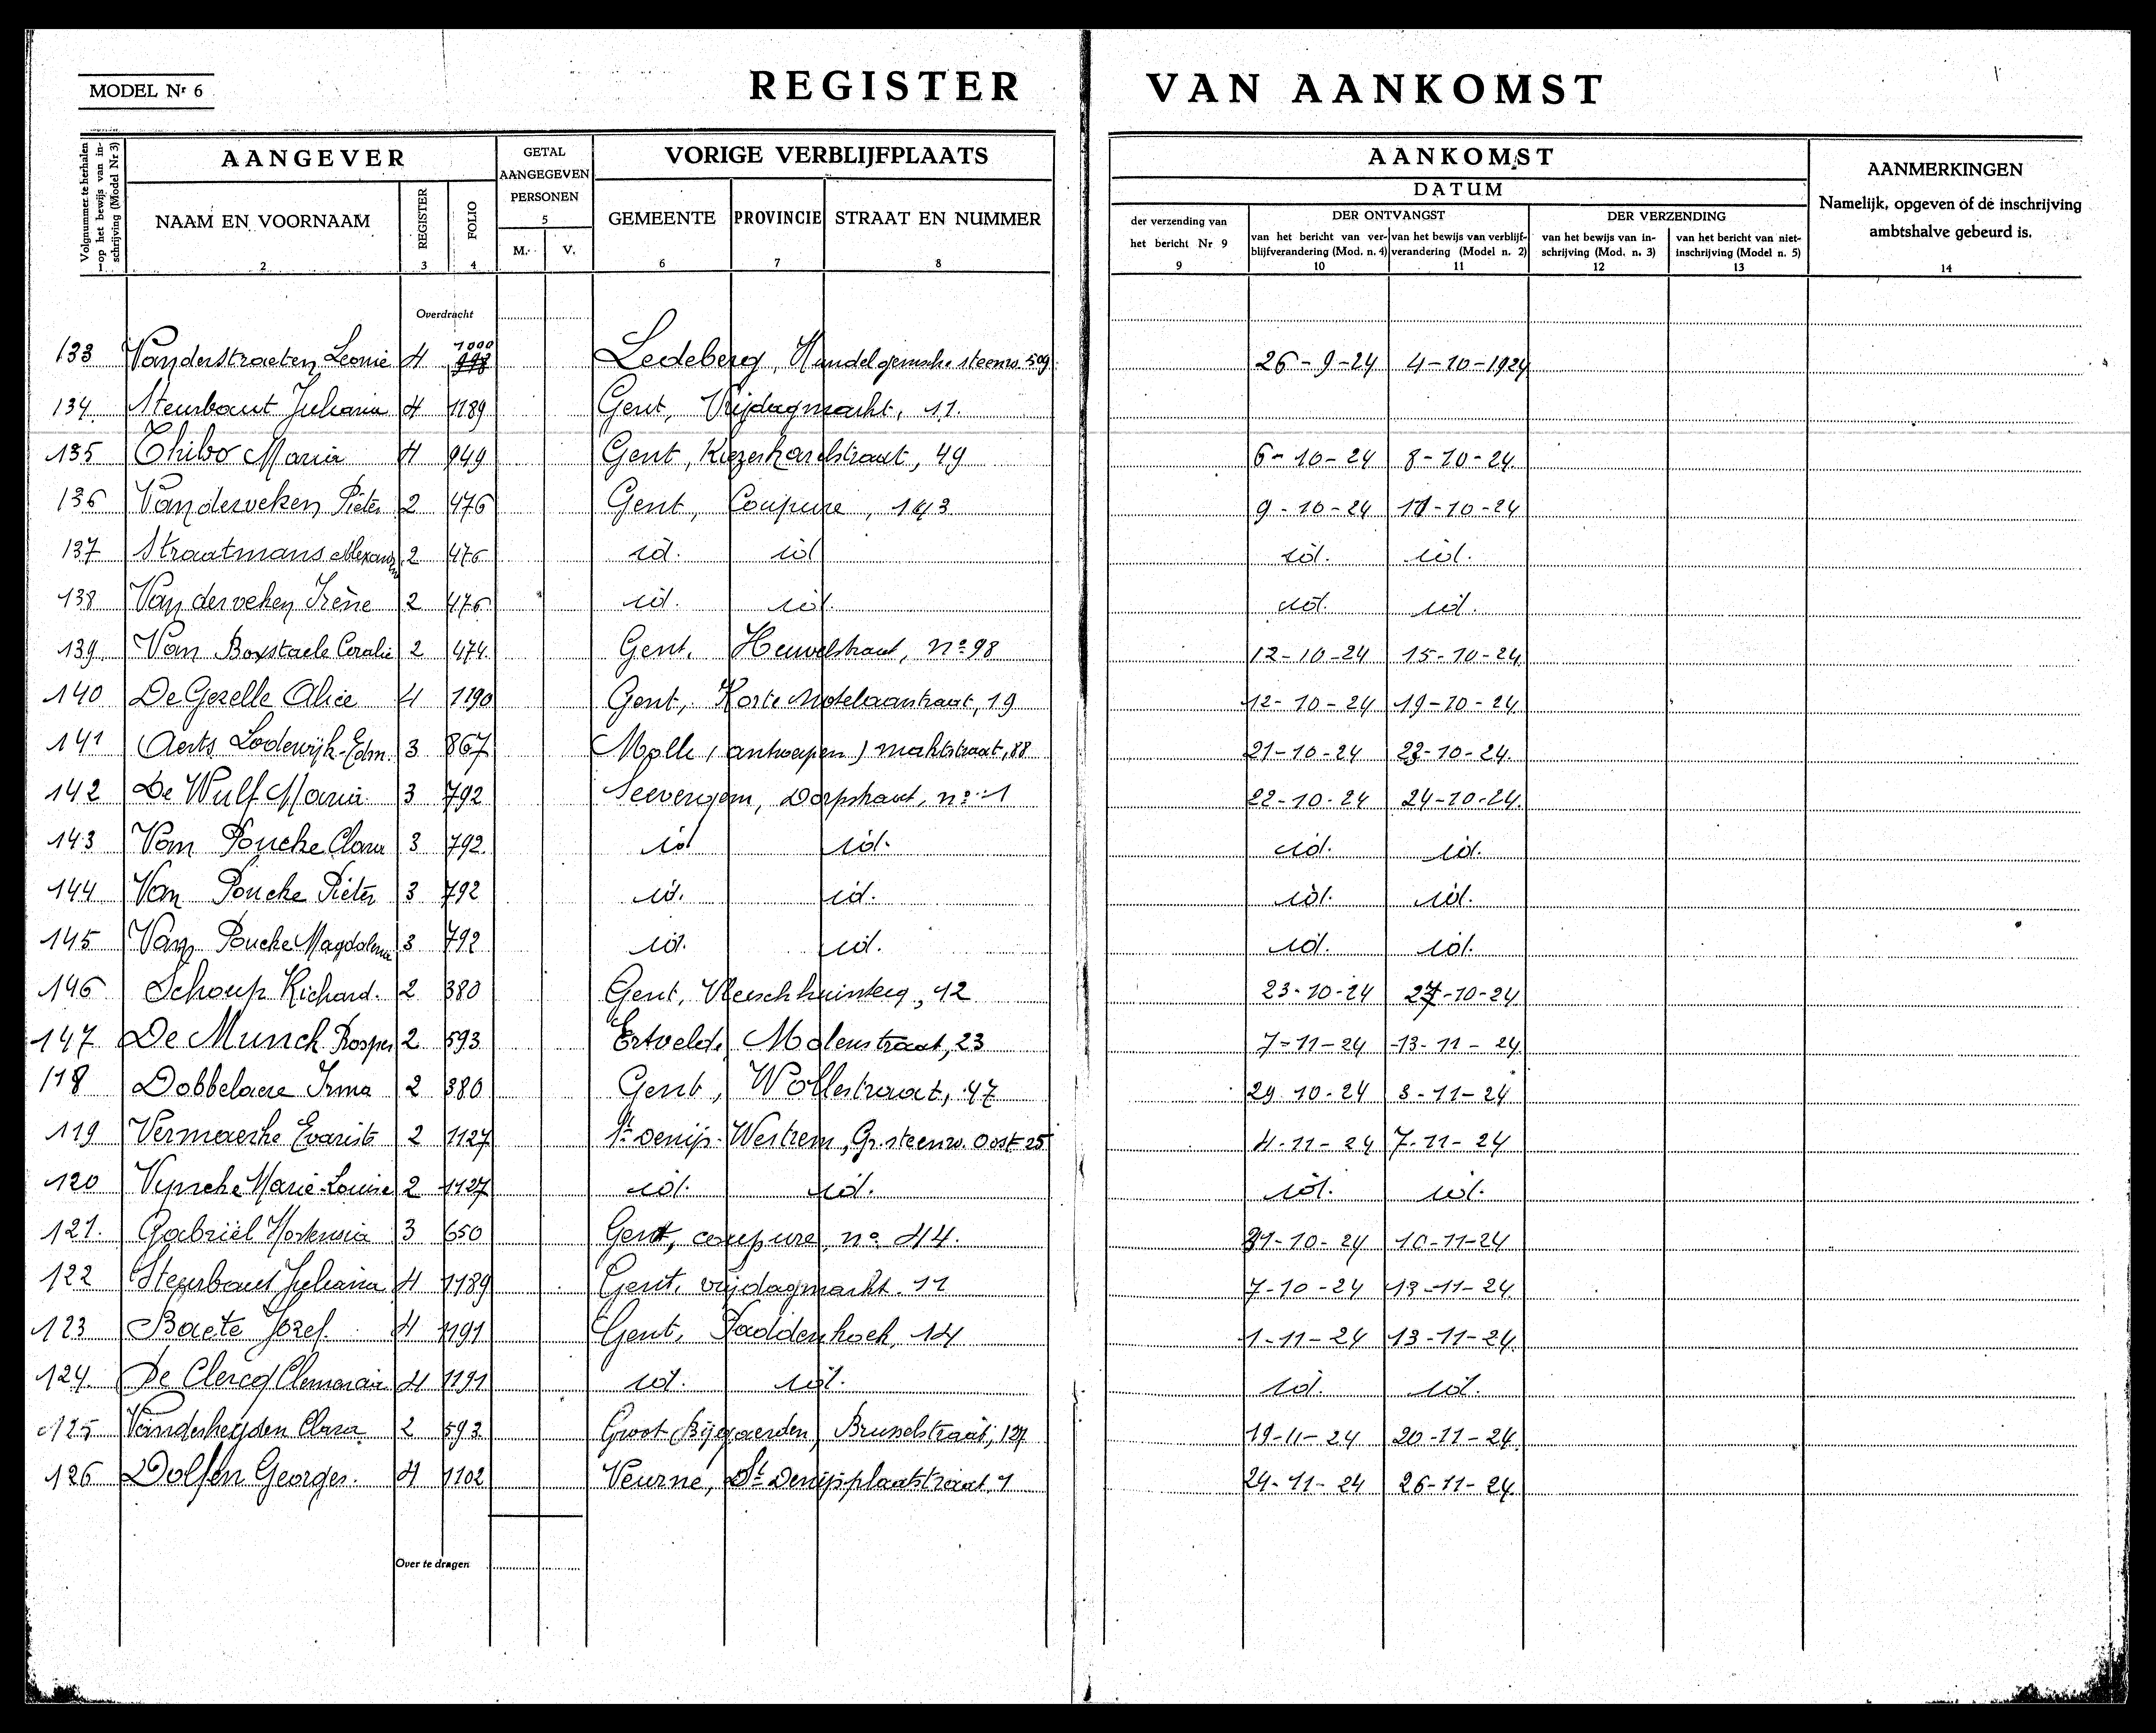 MODEL Nr 6
REGISTER VAN AANKOMST
Volgnummer te herhalen op het bewijs van inschrijving (Model Nr 3) 1
AANGEVER
NAAM EN VOORNAAM 2
REGISTER 3
FOLIO 4
GETAL AANGEGEVEN PERSONEN 5
M. V.
VORIGE VERBLIJFPLAATS
GEMEENTE 6
PROVINCIE 7
STRAAT EN NUMMER 8
AANKOMST
DATUM
der verzending van het bericht Nr 9 9
DER ONTVANGST
van het bericht van verblijfverandering (Mod. n. 4) 10
van het bewijs van verblijfverandering (Model n. 2) 11
DER VERZENDING
van het bewijs van inschrijving (Mod. n. 3) 12
van het bericht van niet-inschrijving (Model n. 5) 13
AANMERKINGEN
Namelijk, opgeven of de inschrijving ambtshalve gebeurd is. 14
Overdracht
133 Vanderstraeten Leonie 4 1000 Ledeberg, steenw. 509 26-9-24 4-10-1924
134 Steurbaut Juliana 4 1189 Gent, Vrijdagmarkt, 11.
135 Thibo Maria 4 949 Gent, Keizerkarelstraat, 49 6-10-24 8-10-24
136 Vanderveken Pieter 2 476 Gent, Coupure, 9-10-24 11-10-24
137 Straatmans 2 476 id. id id. id.
138 Vanderveken Irène 2 476 id. id. id. id.
139 Van Boxstaele Coralie 2 474 Gent, Heuvelstraat, no 98 12-10-24 15-10-24
140 De Gezelle Alice 4 1190 Gent, Korte 19 12-10-24 19-10-24
141 Aerts Lodewijk-Edm. 3 867 Molle (antwerpen) marktstraat, 88 21-10-24 23-10-24
142 De Wulf Maria 3 792 Seevergem, Dorpstraat, no 1 22-10-24 24-10-24
143 Van Poucke Clara 3 792 id id. id. id.
144 Van Poucke Pieter 3 792 id. id. id. id.
145 Van Poucke Magdalena 3 792 id. id. id. id.
146 Schoup Richard. 2 380 Gent, 12 23-10-24 27-10-24
147 De Munck Prosper 2 593 Ertveld, Molenstraat, 23 7-11-24 13-11-24
118 Dobbelaere Irma 2 380 Gent, Wollestraat, 47 29-10-24 3-11-24
119 Vermaerke Evarist 2 1127 St. Denijs-Westrem, Gr. steenw. Oost 25 4-11-24 7-11-24
120 Vyncke Marie-Louise 2 1127 id. id. id. id.
121. Gabriël Hortensia 3 650 Gent, coupure, no 44. 31-10-24 10-11-24
122 Steurbaut Juliana 4 1189 Gent, vrijdagmarkt. 11 7-10-24 13-11-24
123 Baete Jozef. 4 1191 Gent, Paddenhoek, 14 1-11-24 13-11-24
124. De Clercq 4 1191 id. id. id. id.
125 Vanderheyden Clara 2 593 Groot Bijgaerden, Brusselstraat, 127 19-11-24 20-11-24
126 Dolfen Georges. 4 1102 Veurne, St Denijsplaatstraat, 1 24-11-24 26-11-24
Over te dragen